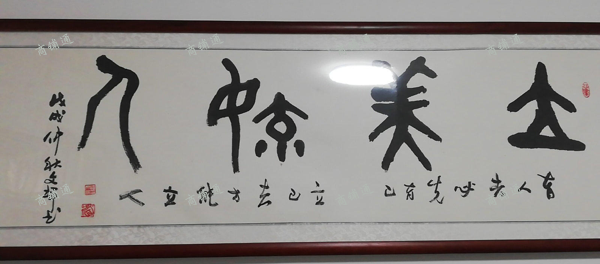 美惊人
育人者必先育己 立己者方能立人
戊戌仲秋文书